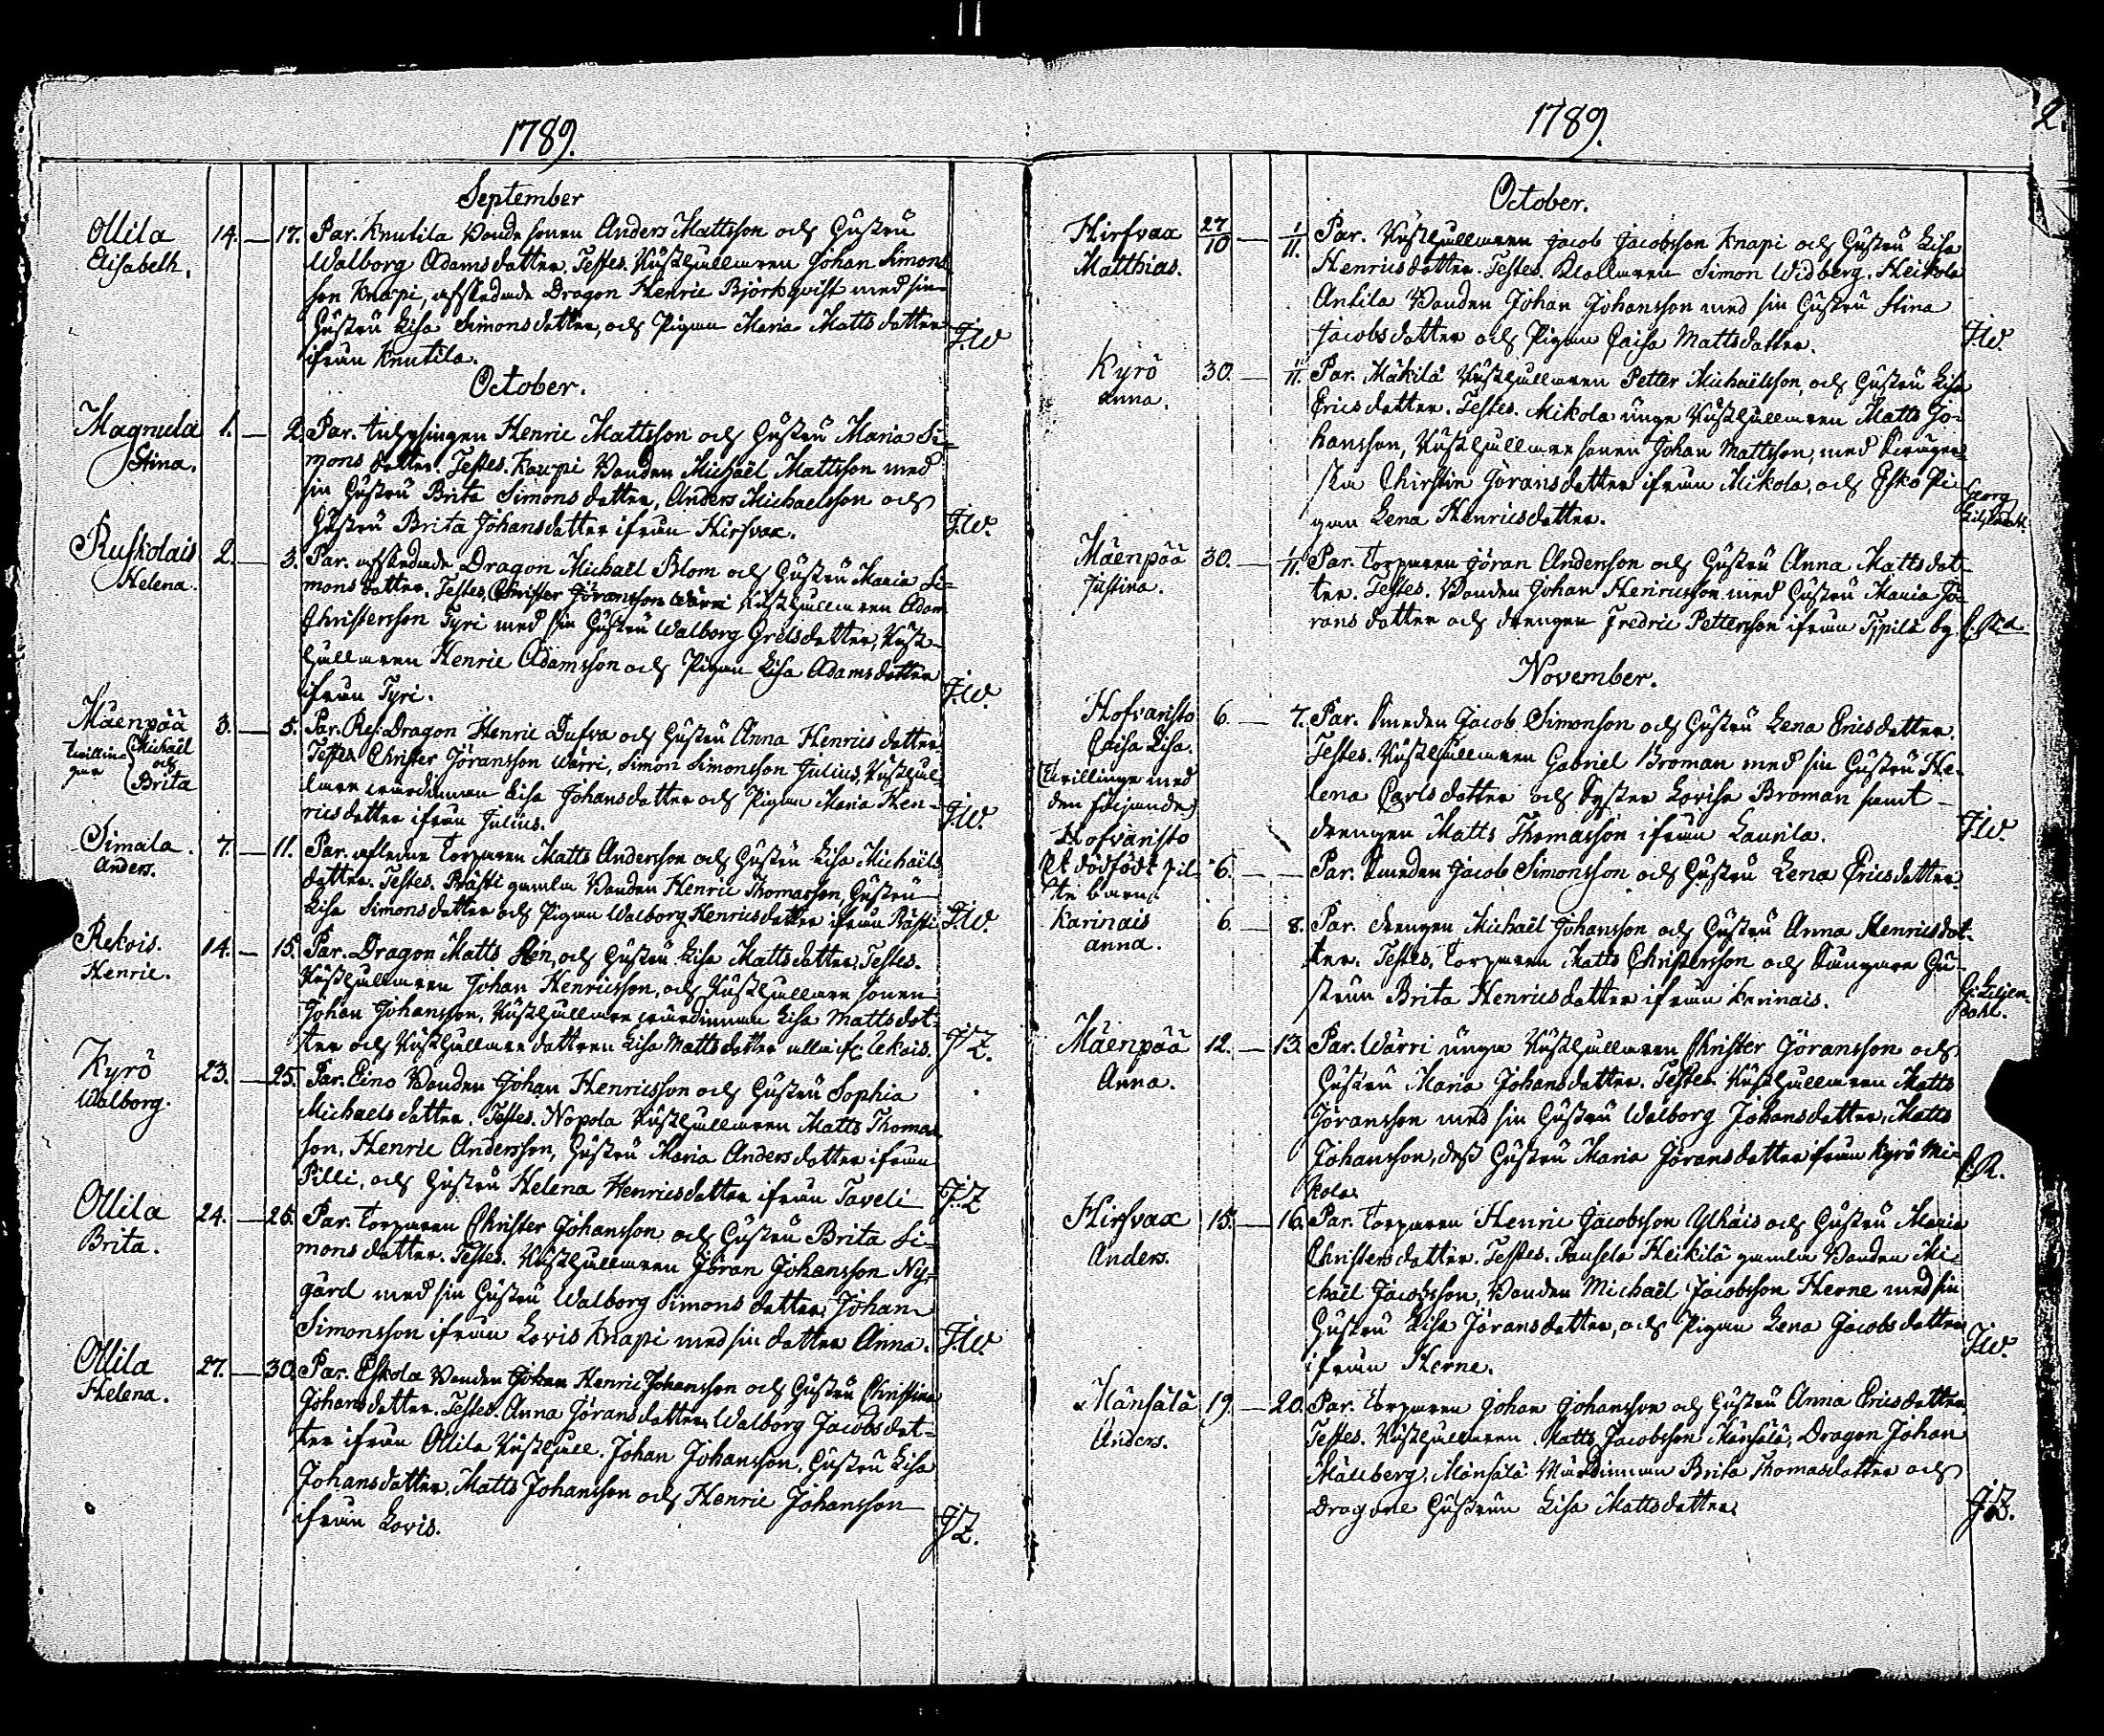 1789.
September
Ollila 14. — 17. Par. Knutila Bonde sonen Anders Mattsson och Hustru
Elisabeth. Walborg Adams dotter. Testes. Rusthållaren Johan Simons
son Knapi, afskedade Dragon Henric Björkqvist med sin
Hustru Lisa Simons dotter, och Pigan Maria Matts dotter
ifrån Knutila. J.W.
October.
Magnula 1. — 2. Par. Henric Mattsson och Hustru Maria Si=
Stina. mons dotter. Testes. Kaupi Bonden Michaël Mattsson med
sin Hustru Brita Simons dotter, Anders Michaelsson och
Hustru Brita Johansdotter ifrån Hirfvox. J.W.
Ruskolais 2. — 3. Par. afskedade Dragon Michaël Blom och Hustru Maria Si=
Helena. mons dotter. Testes, Christer Jöransson Wärri Rusthållaren Adam
Christersson Tyri med sin Hustru Walborg Grelsdotter, Rust=
hållaren Henric Adamsson och Pigan Lisa Adamsdotter
ifrån Tyri. J.W.
Mäenpää 3. — 5. Par. Res: Dragon Henric Dufva och Hustru Anna Henrics dotter
twillin= gar Michaël och Brita Testes Christer Jöransson Wärri, Simon Simonsson Julius, Rusthål=
lare wärdinnan Lisa Johansdotter och Pigan Maria Hen=
ricsdotter ifrån Julius. J.W.
Simala. 7. — 11. Par. aflidne Torparen Matts Andersson och Hustru Lisa Michaëls
Anders. dotter. Testes. Prästi gamla Bonden Henric Thomasson, Hustru
Lisa Simonsdotter och Pigan Walborg Henricsdotter ifrån Prästi. J.W.
Rekois. 14. — 15. Par. Dragon Matts och Hustru Lisa Mattsdotter. Testes.
Henric. Rusthållaren Johan Henricsson, och Rusthållare sonen
Johan Johansson, Rusthållare wärdinnan Lisa Mattsdot=
ter och Rusthållare dottren Lisa Mattsdotter alla if.
Kyrö 23. — 25. Par. Eino Bonden Johan Henricsson och Hustru Sophia
Walborg. Michaels dotter. Testes. Nopola Rusthållaren Matts Thomas
son, Henric Andersson, Hustru Maria Anders dotter ifrån
Pilli, och Hustru Helena Henricsdotter ifrån Taveli
Ollila 24. — 25. Par. Torparen Christer Johansson och Hustru Brita Si=
Brita. mons dotter. Testes. Rusthållaren Jöran Johansson Ny=
gård med sin Hustru Walborg Simons dotter, Johan
Simonsson ifrån Lovis Knapi med sin dotter Anna. J.W.
Ollila 27. — 30. Par. Eskola Bonden Henric Johansson och Hustru Christina
Helena. Johansdotter. Testes. Anna Jöransdotter, Walborg Jacobsdot=
ter ifrån Ollila Rusthåll. Johan Johansson. Hustru Lisa
Johansdotter, Matts Johansson och Henric Johansson
ifrån Lovis.
1789. 2.
October.
Hirfvox 27/10 — 1/11. Par. Rusthållaren Jacob Jacobsson Knapi och Hustru Lisa
Matthias. Henricsdotter. Testes. Simon Widberg. Heikola
Antila Bonden Johan Johansson med sin Hustru Stina
Jacobsdotter och Pigan Caisa Mattsdotter. J.W.
Kyrö 30. — 1/11. Par. Mäkilä Rusthållaren Petter Michaëlsson, och Hustru Lisa
Anna. Ericsdotter. Testes. Mikola unge Rusthållaren Matts Jo=
hansson, Rusthållare sonen Johan Mattsson, med
Chirstin Jöransdotter ifrån Mikola, och Esko Pi=
gan Lena Henricsdotter.
Mäenpää 30. — 1/11. Par. Torparen Jöran Andersson och Hustru Anna Mattsdot=
Justina. ter. Testes. Bonden Johan Henricsson med Hustru Maria Jö=
rans dotter och drengen Fredric Pettersson ifrån Typilä by
November.
Hofvaristo 6. — 7. Par. Smeden Jacob Simonson och Hustru Lena Ericsdotter.
Caisa Lisa. Testes. Rusthållaren Gabriel Broman med sin Hustru He=
(twillinge med lena Carlsdotter och Syster Lovisa Broman samt
den följande) drengen Matts Thomasson ifrån Laurila. J.W.
Hofvaristo
et dödfödt pil= 6. — Par. Smeden Jacob Simonsson och Hustru Lena Ericsdotter.
te barn.
Karinais 6. — 8. Par. drengen Michaël Johansson och Hustru Anna Henricsdot=
Anna. ter. Testes. Torparen Matts Christersson och Hu=
strun Brita Henricsdotter ifrån Karinais.
Mäenpää 12. — 13. Par. Wärri unga Rusthållaren Christer Jöransson och
Anna. Hustru Maria Johansdotter. Testes. Rusthållaren Matts
Jöransson med sin Hustru Walborg Johansdotter, Matts
Johansson, dess Hustru Maria Jöransdotter ifrån Kyrö Mi=
kola.
Hirfvox 15. — 16. Par. Torparen Henric Jacobsson Ylhäis och Hustru Maria
Anders. Christersdotter. Testes. Heikilä gamla Bonden Mi=
chaël Jacobsson, Bonden Michaël Jacobsson Herne med sin
Hustru Lisa Jöransdotter, och Pigan Lena Jacobsdotter
ifrån Herne. J.W.
Mänsälä 19. — 20. Par. Torparen Johan Johansson och Hustru Anna Ericsdotter,
Anders. Testes. Rusthållaren Matts Jacobsson Mänsälä, Dragon Johan
Mällberg, Mänsälä Wärdinnan Brita Thomasdotter och
Dragone Hustrun Lisa Mattsdotter.